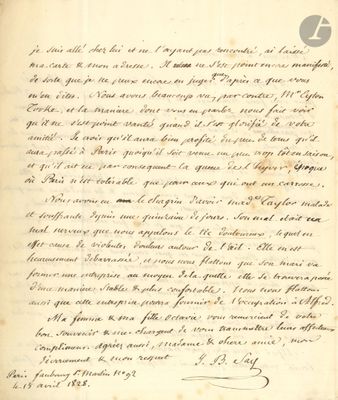 je suis allé chez lui et ne l'ayant pas rencontré, j'ai laissé
ma carte & mon adresse. Il ne s'est point encore manifesté,
de sorte que je ne peux encore en juger que d'après ce que vous
m'en dites. Nous avons beaucoup vu, par contre, Mr Eyton
Tooke, et la manière dont vous en parlez nous fait voir
qu'il ne s'est point vanté quand il s'est glorifié de votre
amitié. Je crois qu'il aura bien profité du peu de tems qu'il
aura passé à Paris quoiqu'il soit venu un peu trop tôt en saison,
et qu'il ait eu par conséquent la queue de l'hyver, époque
où Paris n'est tolérable que pour ceux qui ont un carosse.
Nous avons eu le chagrin d'avoir Taylor malade
et souffrante depuis une quinzaine de jours. Son mal était un
mal nerveux que nous appelons le tic douloureux, lequel en
effet cause de violentes douleurs autour de l'œil. Elle en est
heureusement débarrassée, et nous nous flattons que son mari va
former une entreprise au moyen de laquelle elle se trouvera posée
d'une manière stable & plus confortable. Nous nous flattons
aussi que cette entreprise pourra fournir de l'occupation à Alfred.
Ma femme & ma fille Octavie vous remercient de votre
bon souvenir & me chargent de vous transmettre leurs affectueux
complimens. Agréez aussi, madame & chère amie, mon
dévouement & mon respect
J. B. Say
Paris faubourg St. Martin No 92
le 15 avril 1828.